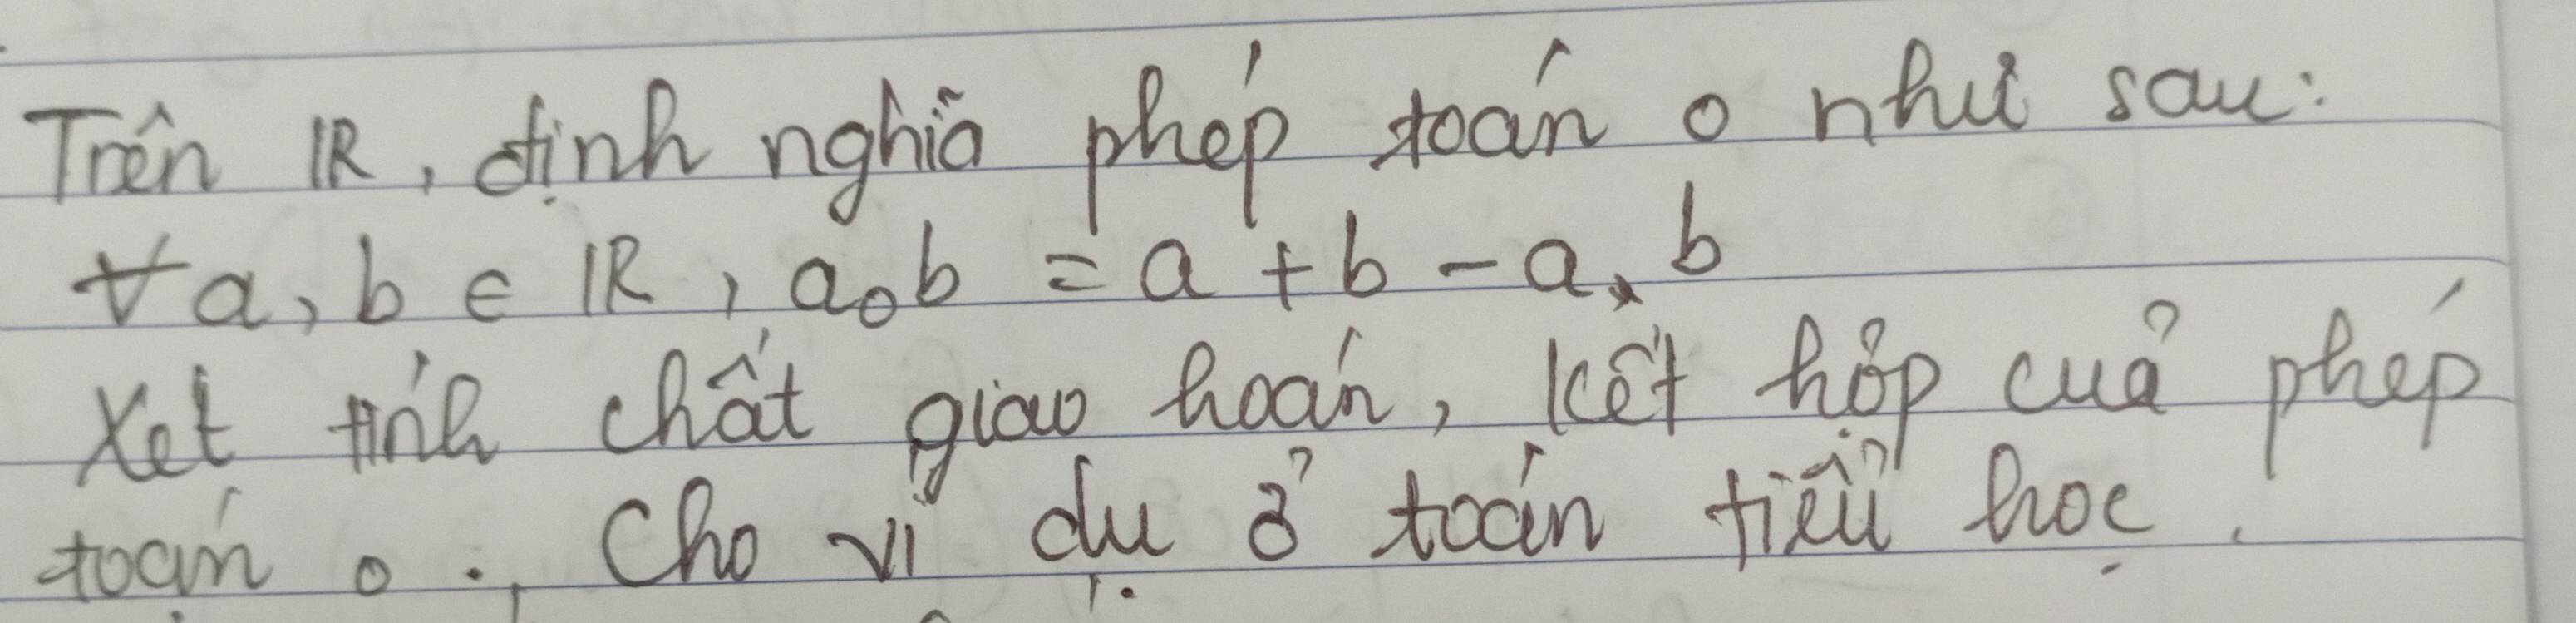 Trên ℝ, định nghĩa phép toán o như sau:
∀a, b ∈ ℝ, a o b = a + b - a.b
Xét tính chất giao hoán, kết hợp của phép
toán o. Cho ví dụ ở toán tiểu học.